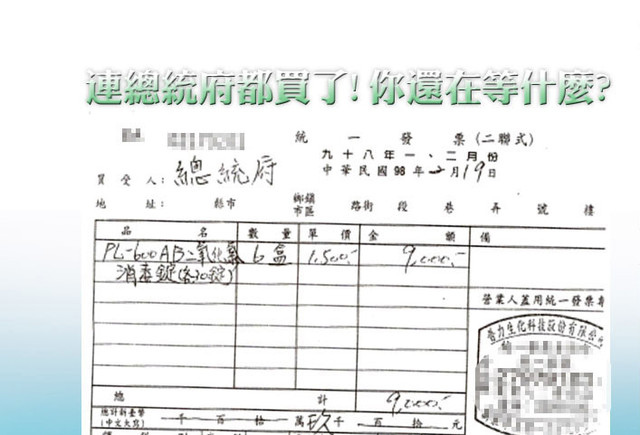 連總統府都買了! 你還在等什麼?
統一發票(二聯式)
九十八年一、二月份
中華民國98年2月19日
買受人: 總統府
地址: 縣市 鄉鎮市區 路街 段 巷 弄 號 樓
品名 數量 單價 金額 備
PL-600AB二氧化氯 6盒 1,500.- 9,000.-
消毒錠(10錠)
營業人蓋用統一發票專
普力生化科技股份有限公
總計 9,000.-
總計新臺幣 千 百 拾 萬 玖 千 百 拾 元
(中文大寫)